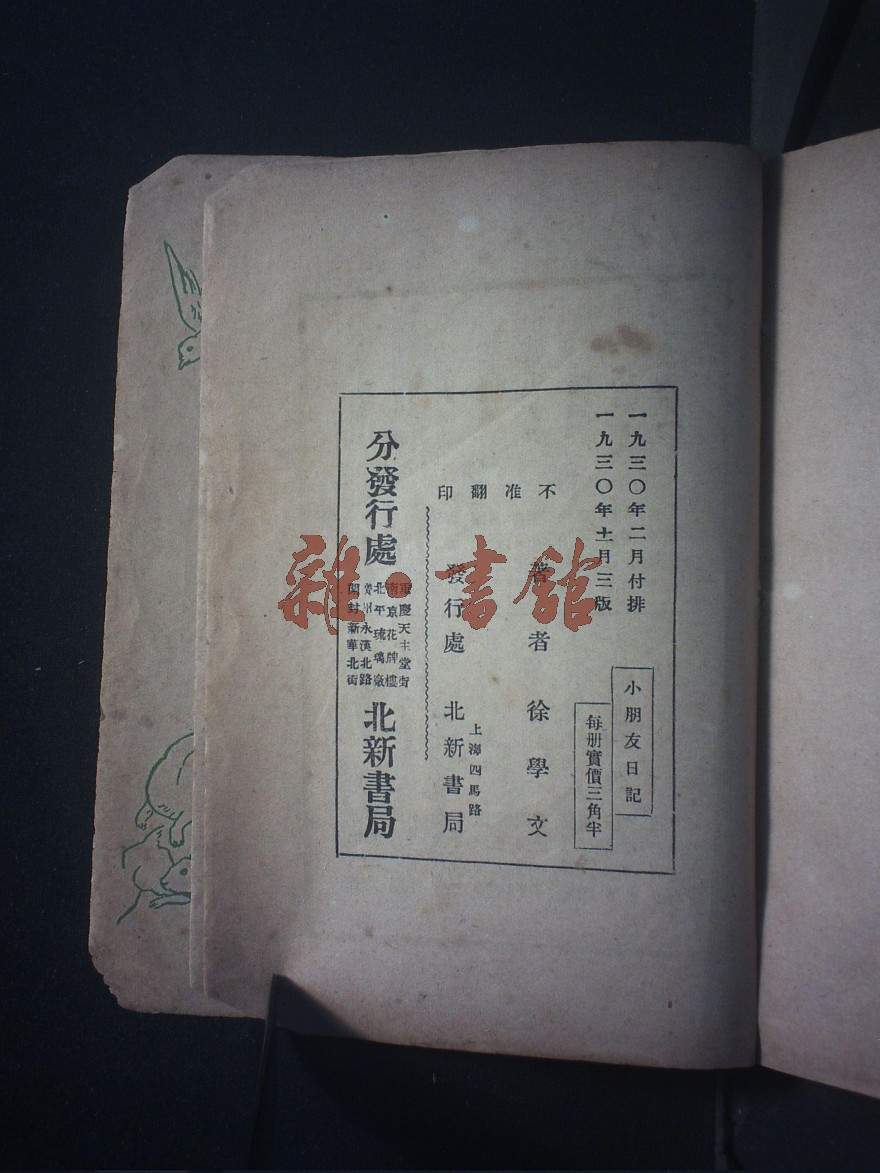 一九三〇年二月付排
一九三〇年十一月三版
小朋友日記
每册實價三角半
不准翻印
著者 徐學文
上海四馬路
發行處 北新書局
分發行處
重慶天主堂街
南京花牌樓
北平琉璃廠
廣州永漢北路
開封新華北街
北新書局
雜·書館